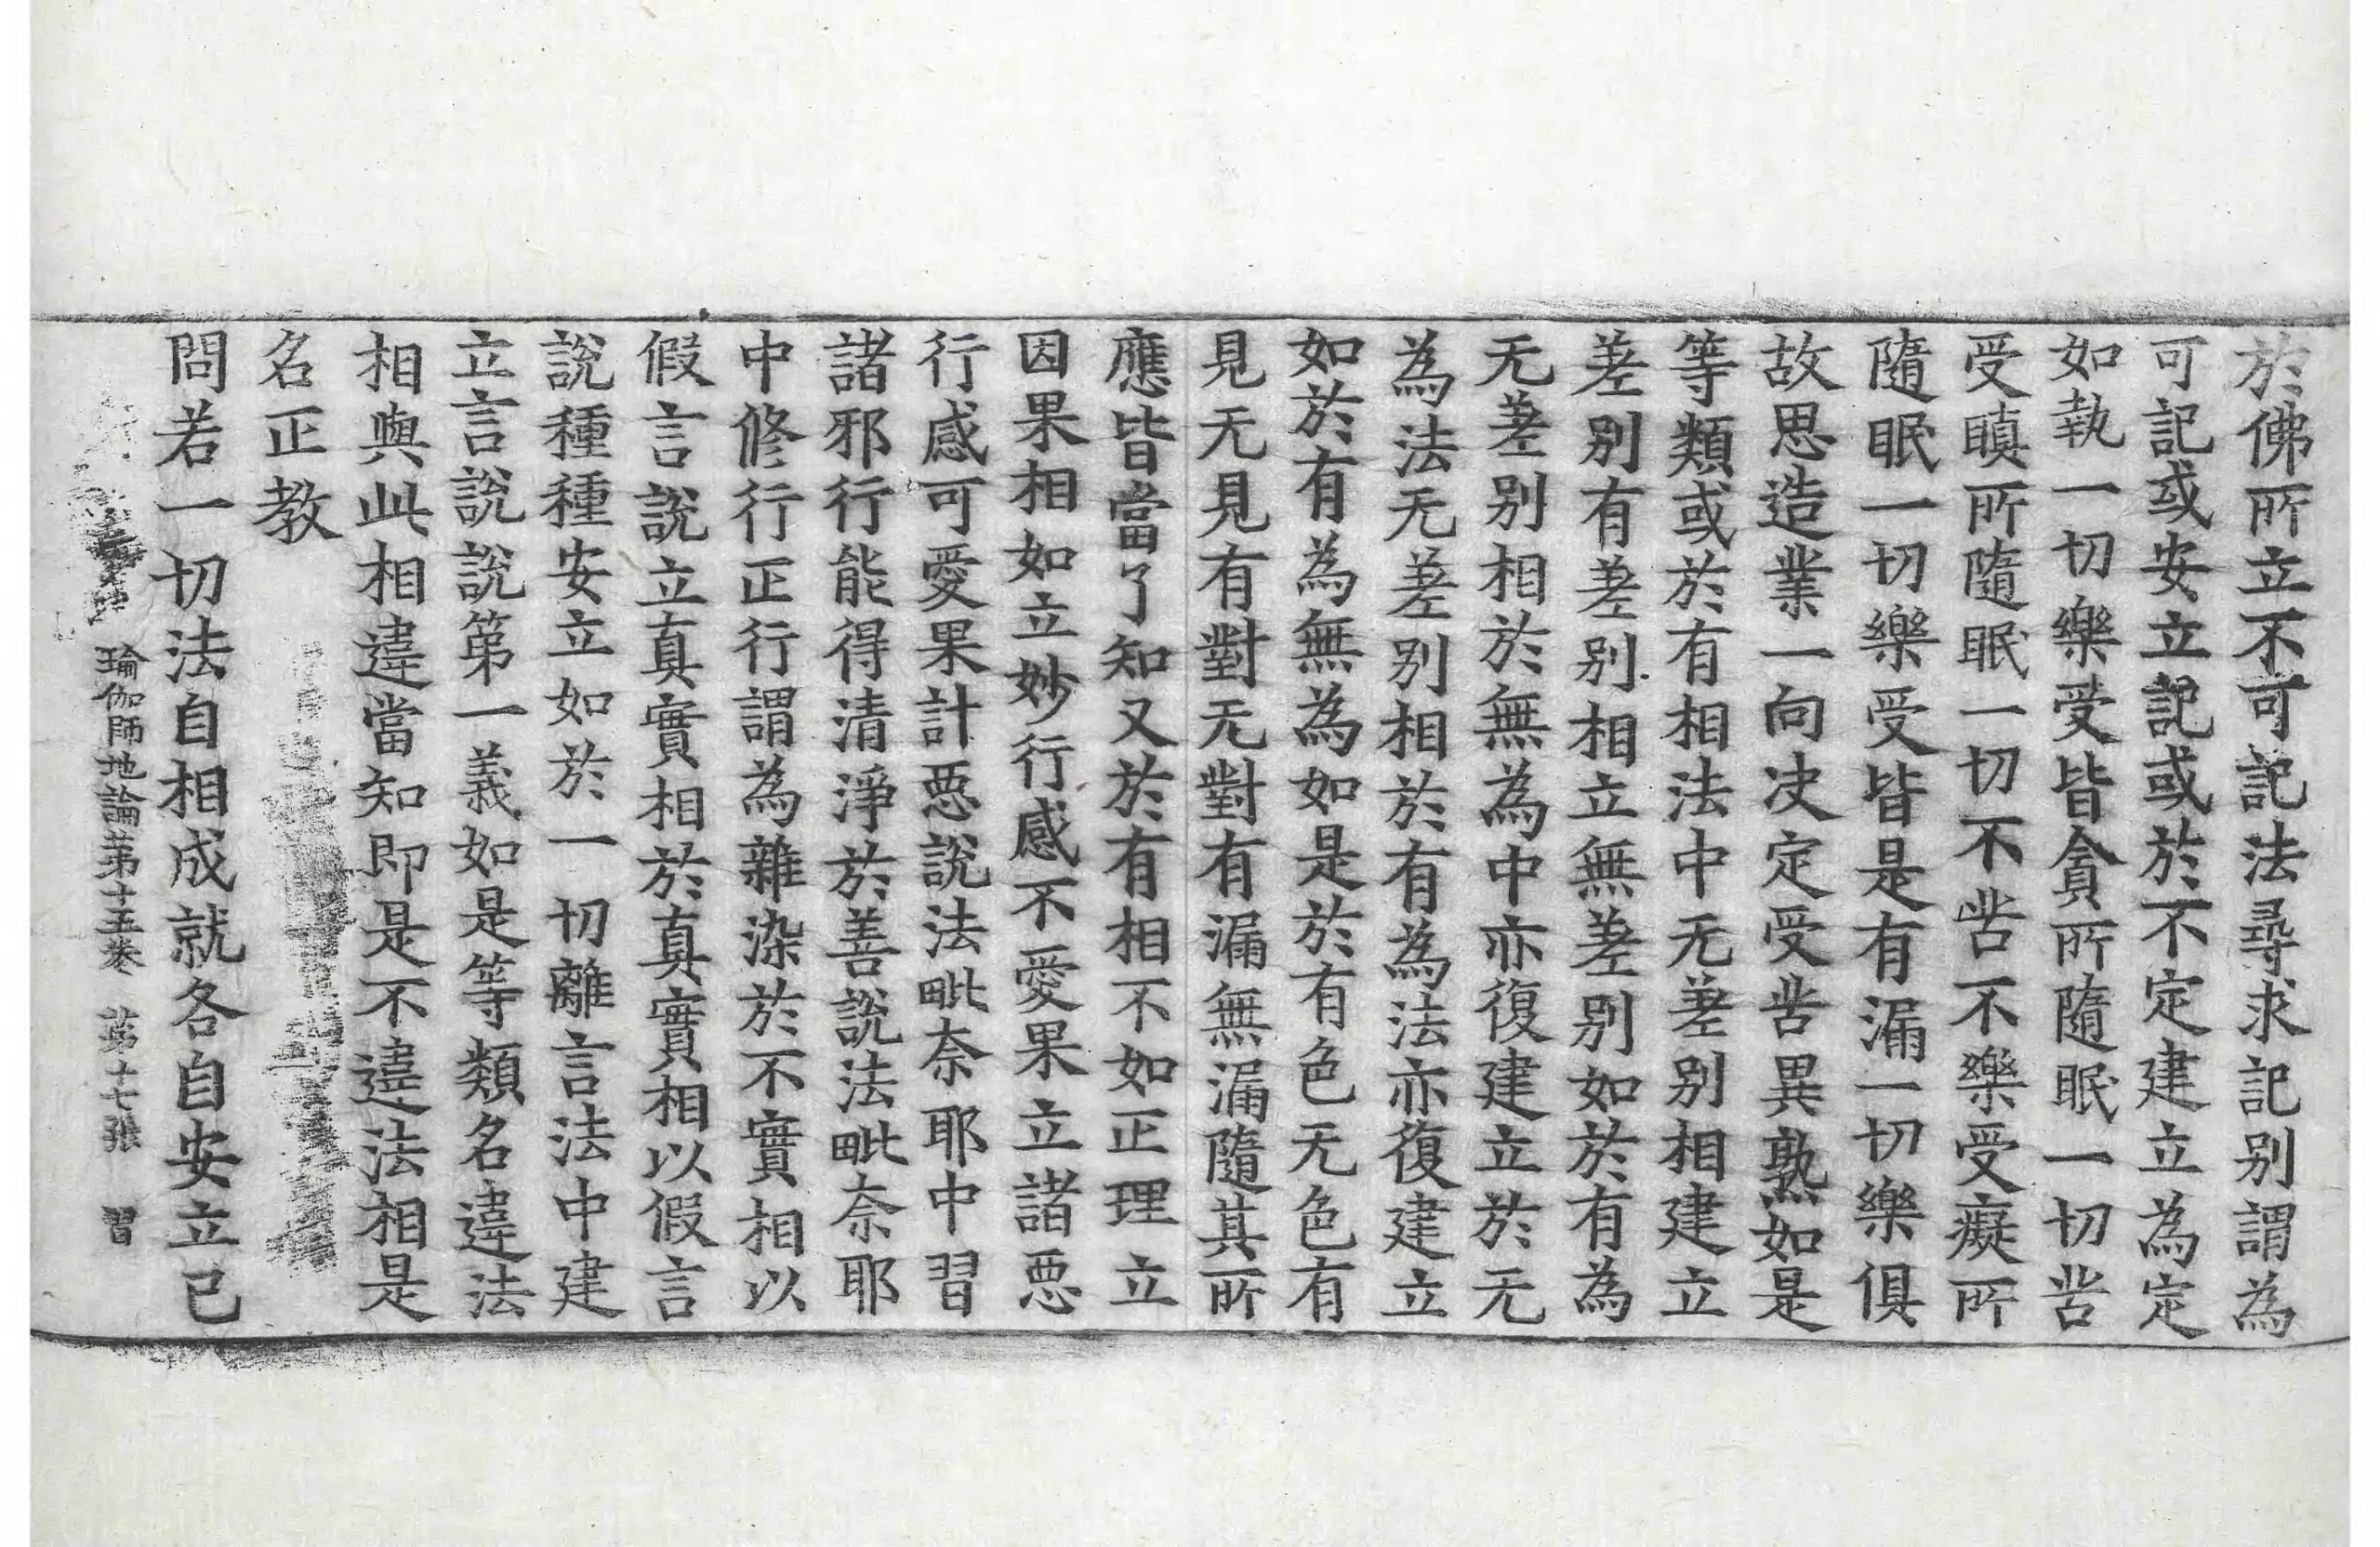 於佛所立不可記法尋求記別謂為
可記或安立記或於不定建立為定
如執一切樂受皆貪所隨眠一切苦
受瞋所隨眠一切不苦不樂受癡所
隨眠一切樂受皆是有漏一切樂俱
故思造業一向決定受苦異熟如是
等類或於有相法中无差別相建立
差別有差別相立無差別如於有為
无差別相於無為中亦復建立於无
為法无差別相於有為法亦復建立
如於有為無為如是於有色无色有
見无見有對无對有漏無漏隨其所
應皆當了知又於有相不如正理立
因果相如立妙行感不愛果立諸惡
行感可愛果計惡說法毗奈耶中習
諸邪行能得清淨於善說法毗奈耶
中修行正行謂為雜染於不實相以
假言說立真實相於真實相以假言
說種種安立如於一切離言法中建
立言說說第一義如是等類名違法
相與此相違當知即是不違法相是
名正教
問若一切法自相成就各自安立已
瑜伽師地論第十五卷 第十七張 習